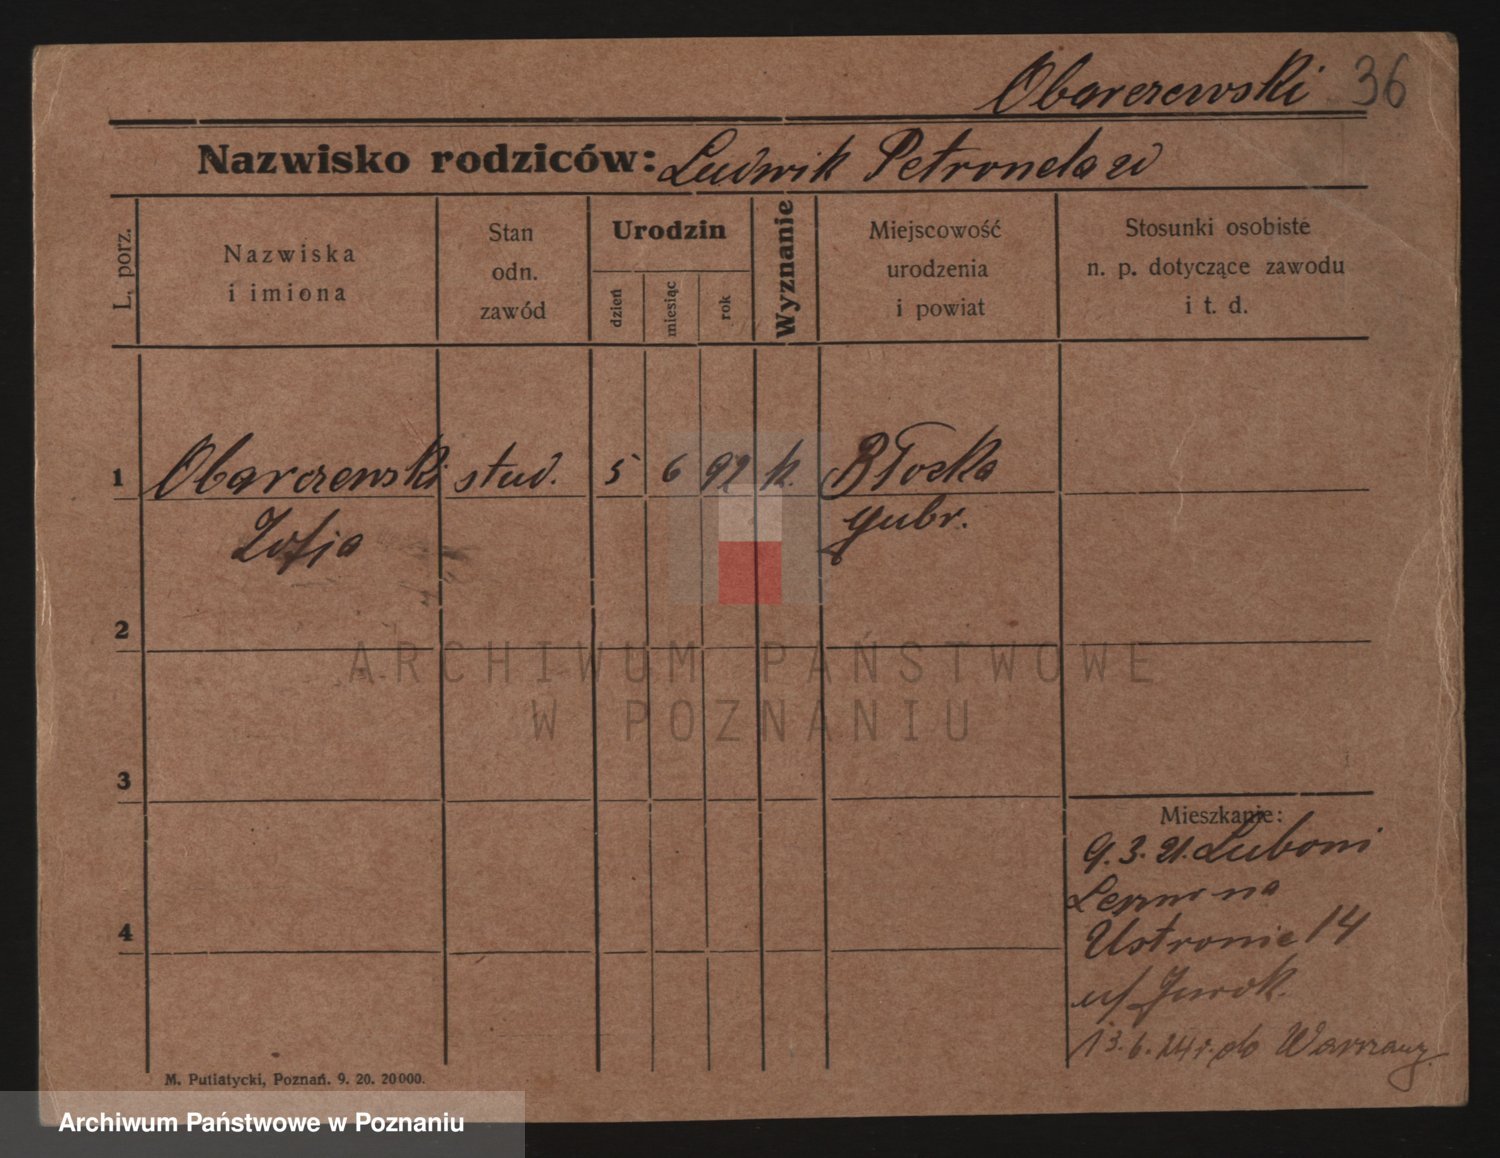 Obarczewski 36
Nazwisko rodziców: Ludwik Petronela
L. porz.
Nazwiska
i imiona
Stan
odn.
zawód
Urodzin
dzień
miesiąc
rok
Wyznanie
Miejscowość
urodzenia
i powiat
Stosunki osobiste
n. p. dotyczące zawodu
i t. d.
1 Obarczewski stud. 5 6 92 k. Błoska
Zofja gubr.
2
ARCHIWUM PAŃSTWOWE
W POZNANIU
3
Mieszkanie:
9.3.21. Luboni
na
4
Ustronie 14
u/
13.6.24 r. do Warszawy
M. Putiatycki, Poznań. 9. 20. 20000.
Archiwum Państwowe w Poznaniu